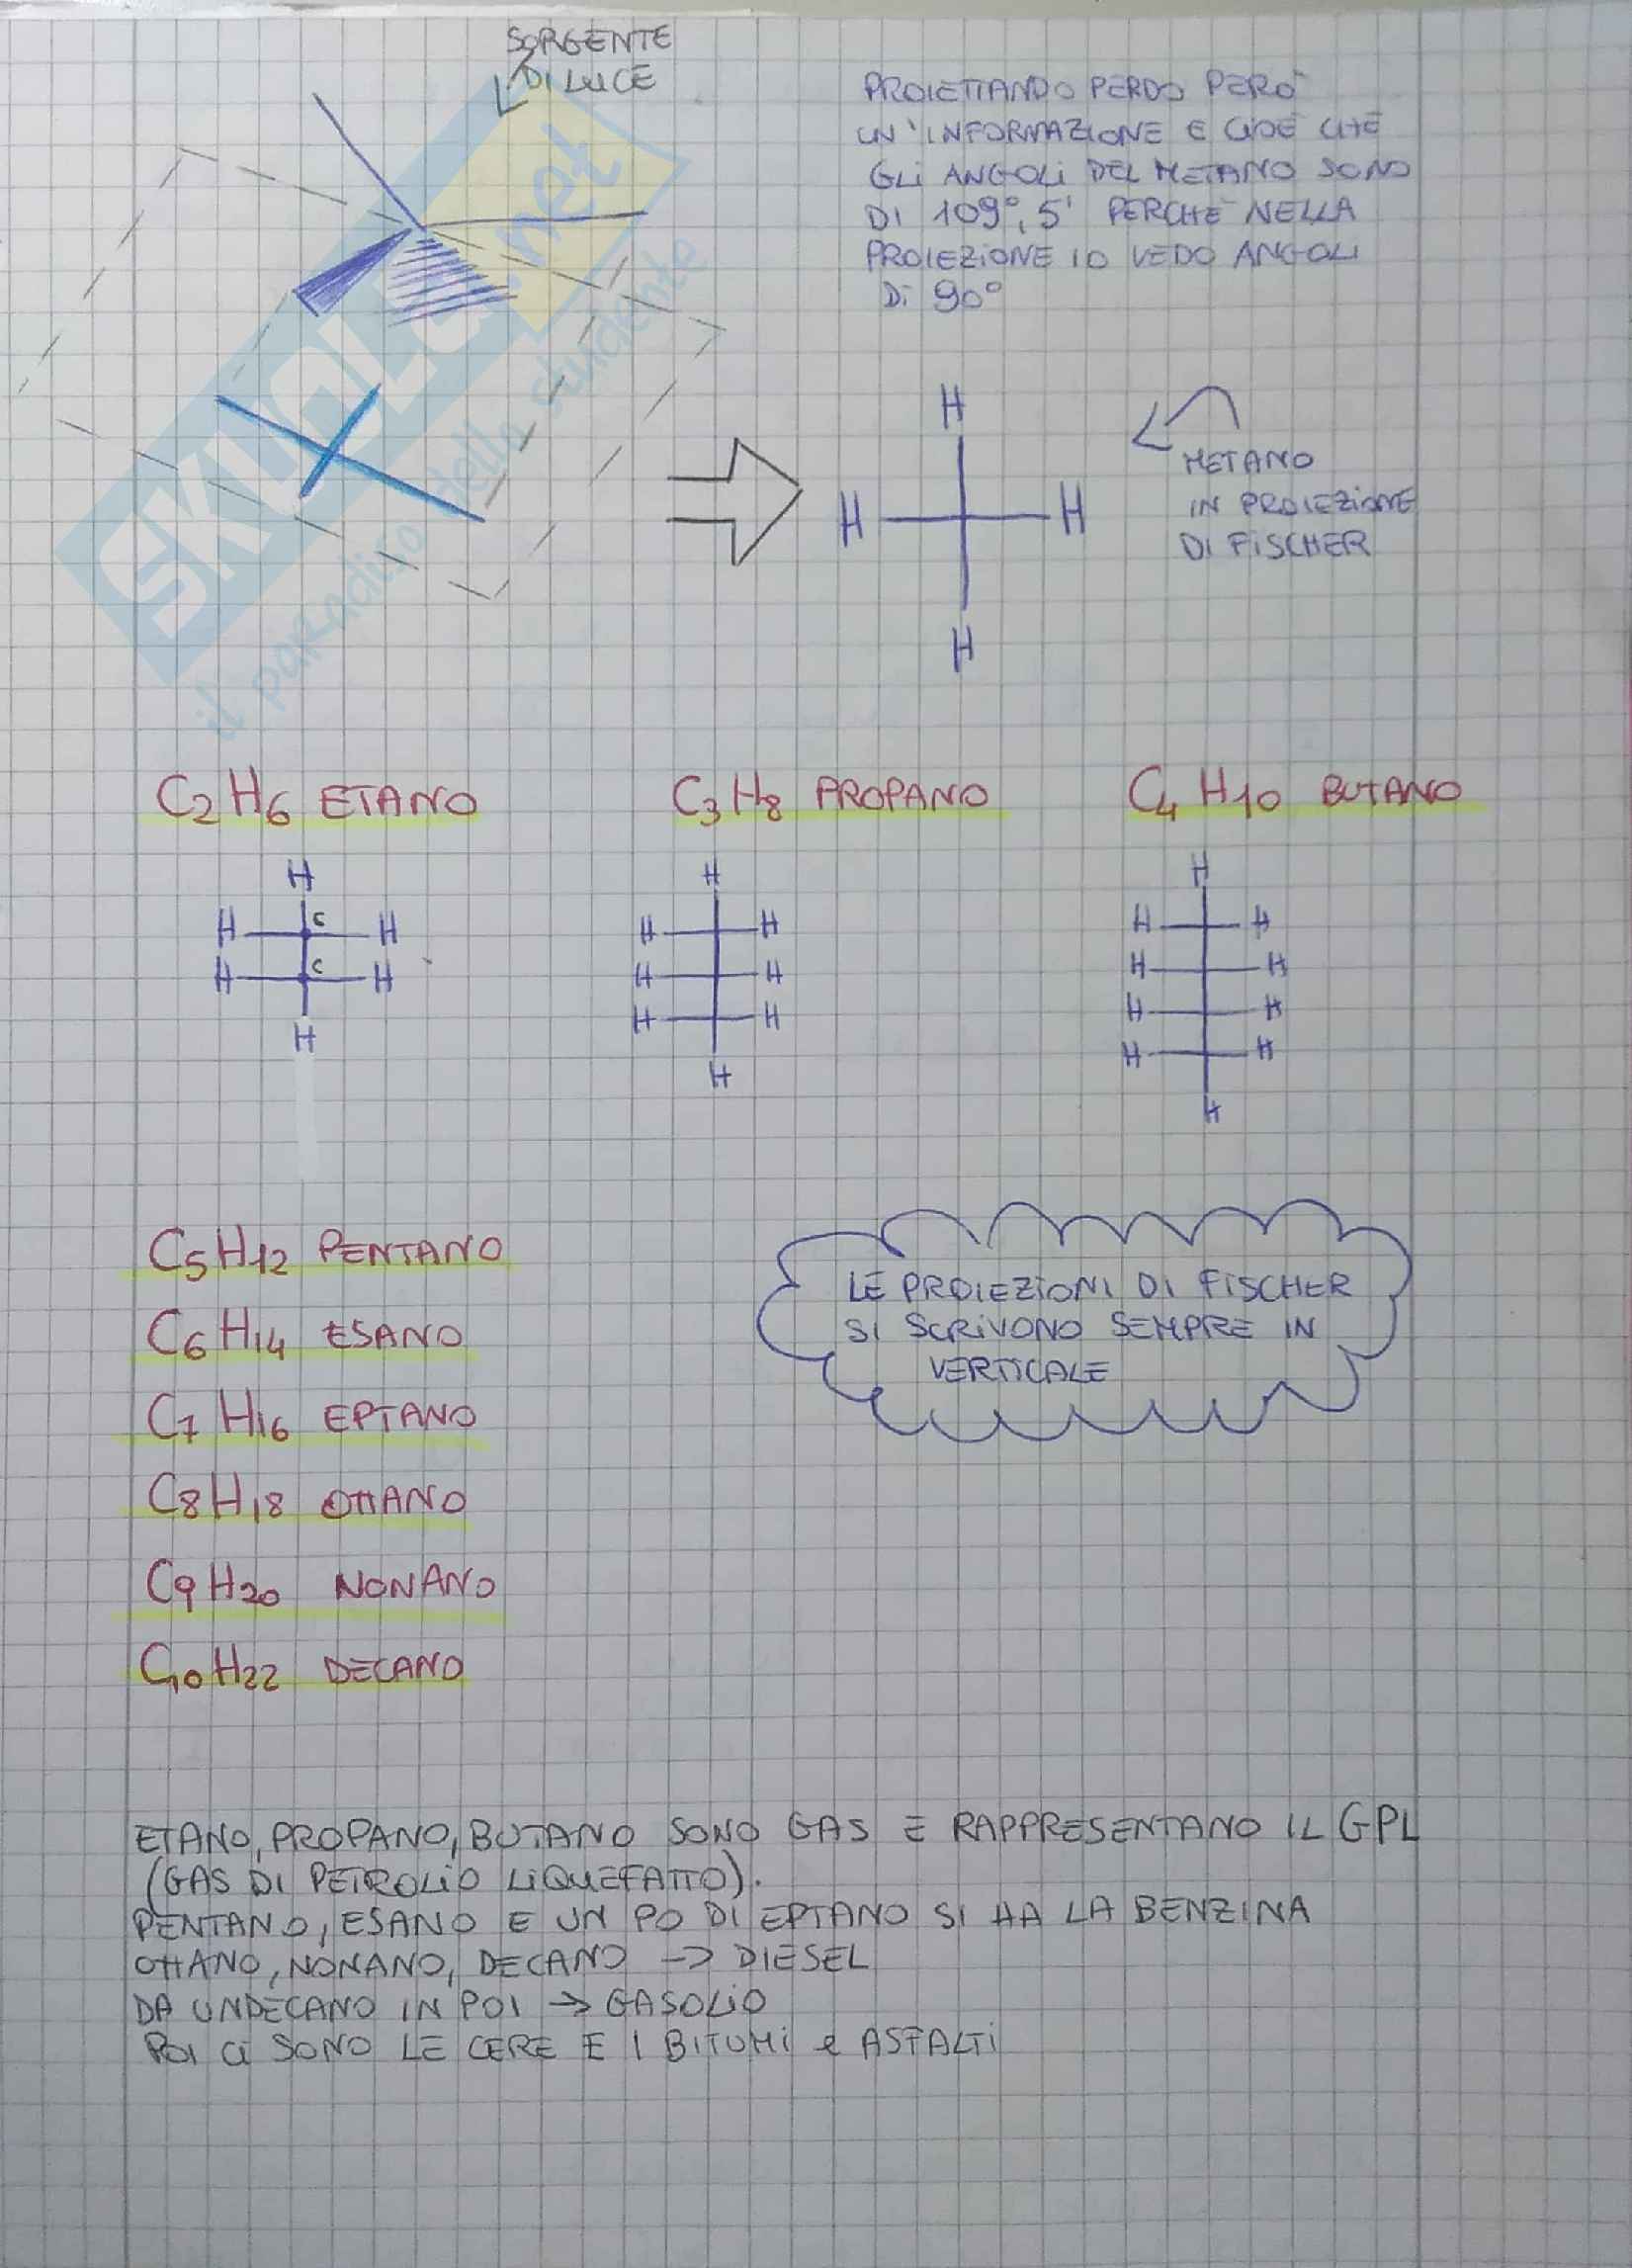 SORGENTE
DI LUCE
PROIETTANDO PERDO PERÒ
UN'INFORMAZIONE E CIOÈ CHE
GLI ANGOLI DEL METANO SONO
DI 109°,5' PERCHÈ NELLA
PROIEZIONE IO VEDO ANGOLI
DI 90°
SKUOLA.net
il paradiso dello studente
H
H H
H
METANO
IN PROIEZIONE
DI FISCHER
C2H6 ETANO
C3H8 PROPANO
C4H10 BUTANO
H
C
H H
C
H H
H
H
H H
H H
H H
H
H
H H
H H
H H
H H
H
C5H12 PENTANO
C6H14 ESANO
C7H16 EPTANO
C8H18 OTTANO
C9H20 NONANO
C10H22 DECANO
LE PROIEZIONI DI FISCHER
SI SCRIVONO SEMPRE IN
VERTICALE
ETANO, PROPANO, BUTANO SONO GAS E RAPPRESENTANO IL GPL
(GAS DI PETROLIO LIQUEFATTO).
PENTANO, ESANO E UN PO DI EPTANO SI HA LA BENZINA
OTTANO, NONANO, DECANO -> DIESEL
DA UNDECANO IN POI -> GASOLIO
POI CI SONO LE CERE E I BITUMI e ASFALTI